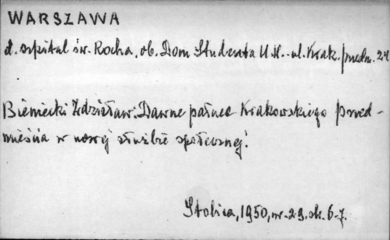 WARSZAWA
d. szpital św. Rocha, ob. Dom Studenta U.W. - ul. Krak. Przedm. 24
Bieniecki Zdzisław: Dawne pałace Krakowskiego Przed-
mieścia w nowej służbie społecznej.
Stolica, 1950, nr. 29. str. 6-7.